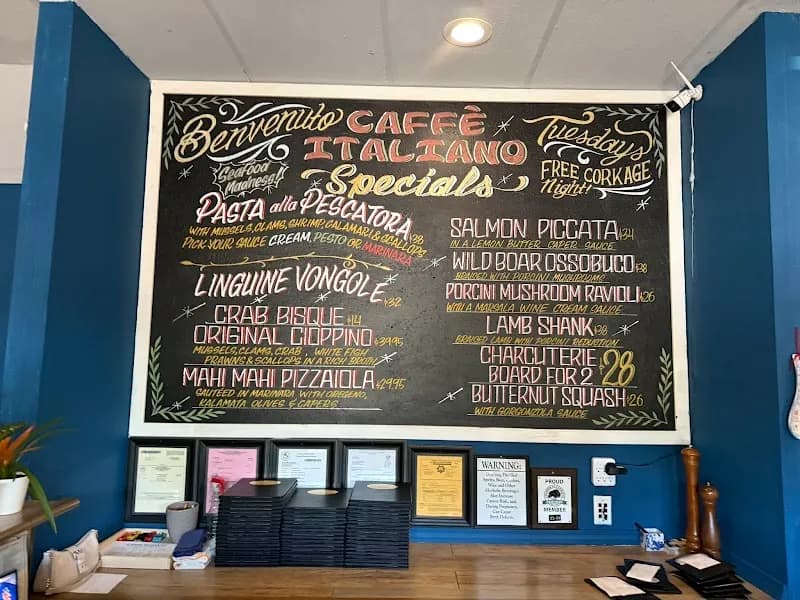 Benvenuto
CAFFÈ
ITALIANO
Specials
Tuesdays
FREE CORKAGE
Night!
Seafood
Madness!!
PASTA alla PESCATORA $38
WITH MUSSELS, CLAMS, SHRIMP, CALAMARI & SCALLOPS
PICK YOUR SAUCE CREAM, PESTO OR MARINARA
LINGUINE VONGOLE $32
CRAB BISQUE $14
ORIGINAL CIOPPINO $39.95
MUSSELS, CLAMS, CRAB, WHITE FISH
PRAWNS & SCALLOPS IN A RICH BROTH
MAHI MAHI PIZZAIOLA $29.95
SAUTEED IN MARINARA WITH OREGENO,
KALAMATA OLIVES & CAPERS
SALMON PICCATA $34
IN A LEMON BUTTER CAPER SAUCE
WILD BOAR OSSOBUCO $38
BRAISED WITH PORCINI MUSHROOMS
PORCINI MUSHROOM RAVIOLI $26
WITH A MARSALA WINE CREAM SAUCE
LAMB SHANK $38
BRAISED LAMB WITH PORCINI REDUCTION
CHARCUTERIE
BOARD FOR 2 $28
BUTTERNUT SQUASH $26
WITH GORGONZOLA SAUCE
WARNING:
Drinking Distilled
Spirits, Beer, Coolers,
Wine and Other
Alcoholic Beverages
May Increase
Cancer Risk, and
During Pregnancy,
Can Cause
Birth Defects
PROUD
MEMBER